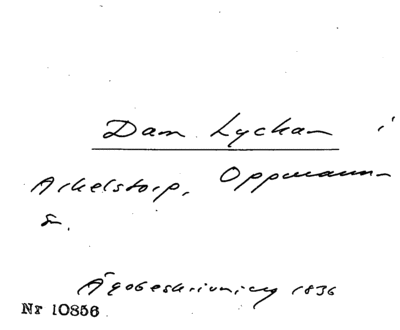 Dam Lyckan i
Arkelstorp, Oppmanna
sn.
Ägobeskrivning 1836
Nr 10856